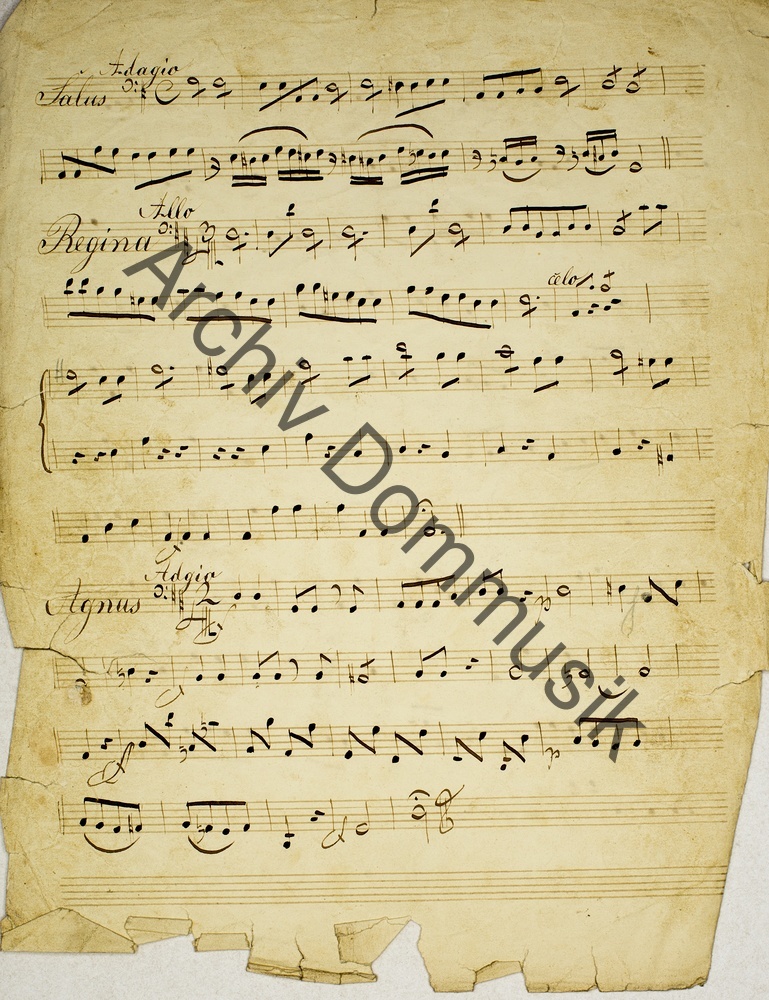 Adagio
Salus
Allo
Regina
celo
Adgio
Agnus
Archiv Dommusik